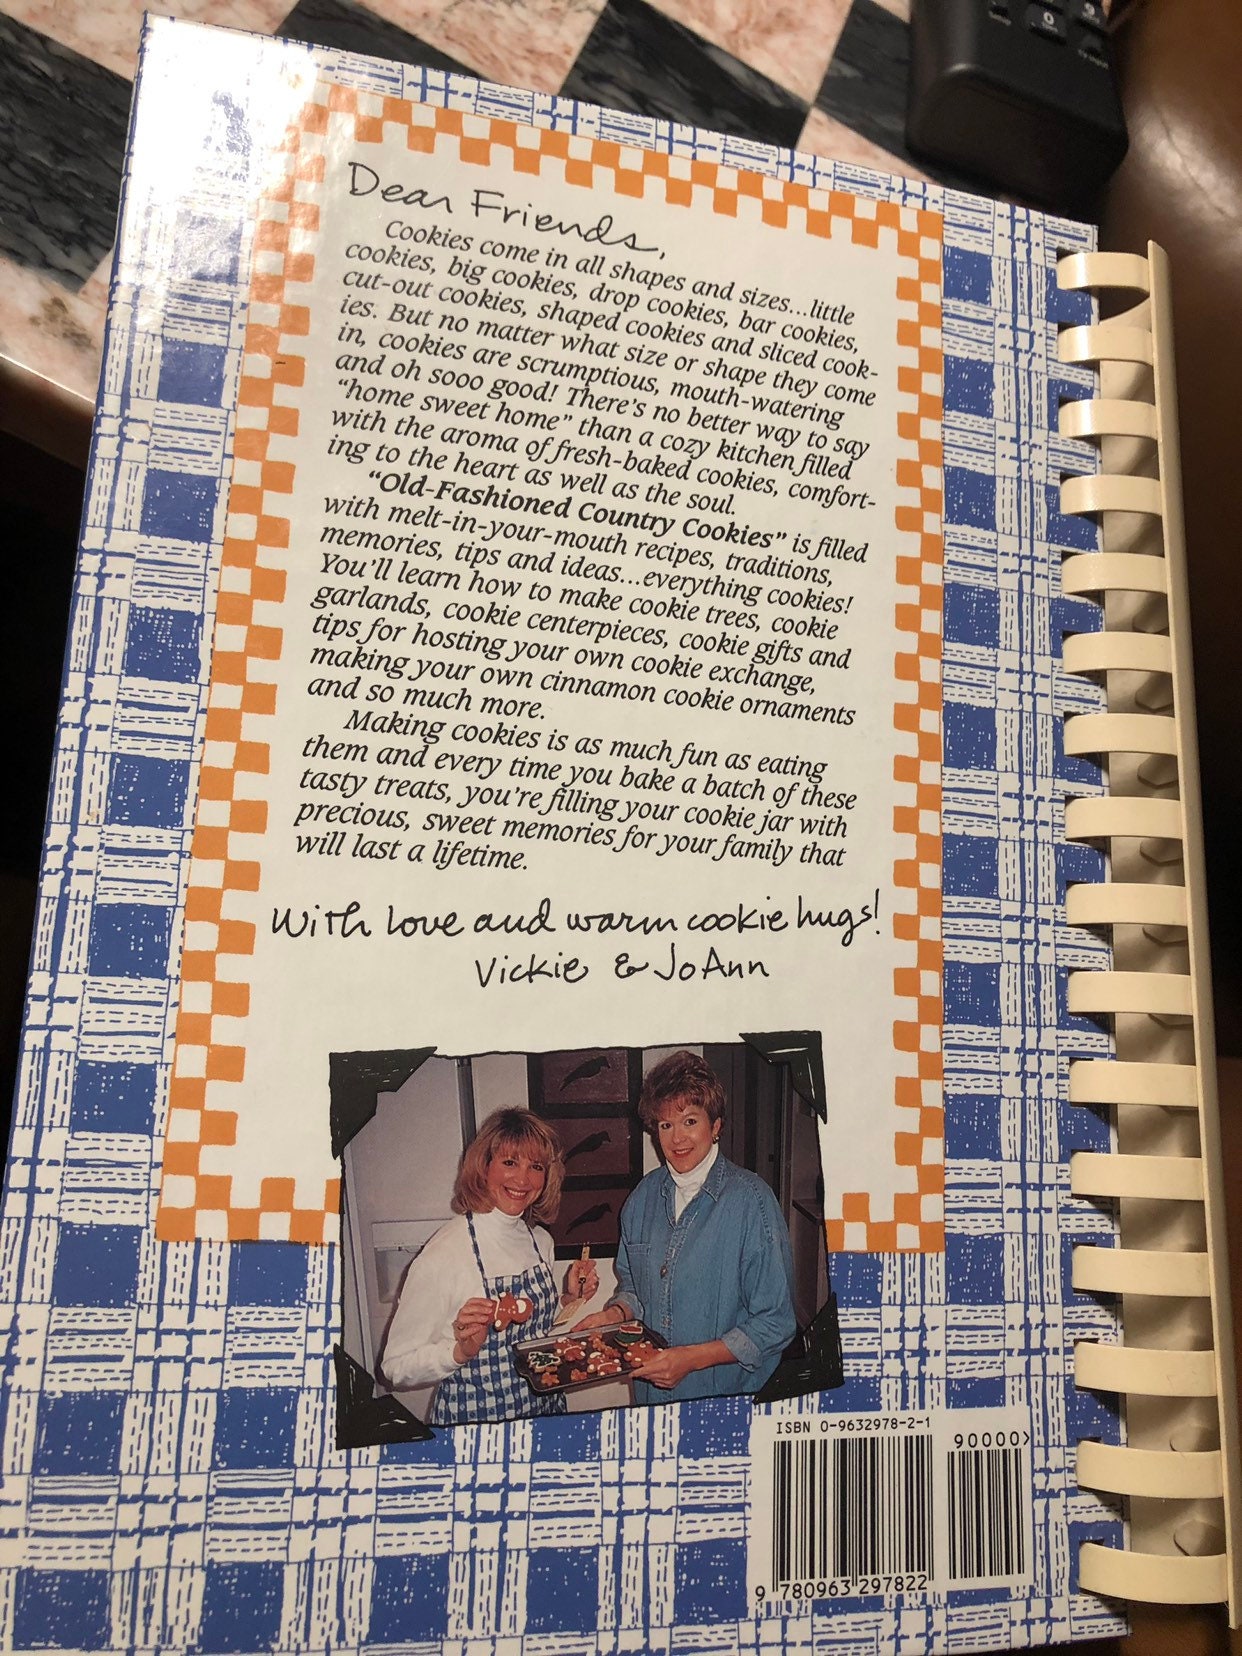 Dear Friends,
Cookies come in all shapes and sizes...little
cookies, big cookies, drop cookies, bar cookies,
cut-out cookies, shaped cookies and sliced cook-
ies. But no matter what size or shape they come
in, cookies are scrumptious, mouth-watering
and oh sooo good! There's no better way to say
"home sweet home" than a cozy kitchen filled
with the aroma of fresh-baked cookies, comfort-
ing to the heart as well as the soul.
"Old-Fashioned Country Cookies" is filled
with melt-in-your-mouth recipes, traditions,
memories, tips and ideas...everything cookies!
You'll learn how to make cookie trees, cookie
garlands, cookie centerpieces, cookie gifts and
tips for hosting your own cookie exchange,
making your own cinnamon cookie ornaments
and so much more.
Making cookies is as much fun as eating
them and every time you bake a batch of these
tasty treats, you're filling your cookie jar with
precious, sweet memories for your family that
will last a lifetime.
With love and warm cookie hugs!
Vickie & JoAnn
ISBN 0-9632978-2-1
90000>
9 780963 297822